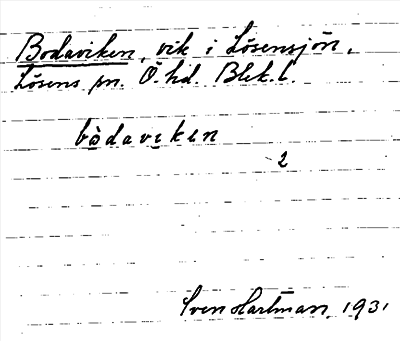 Bodaviken, vik i Lösensjön,
Lösens sn. Ö. hd. Blek. l.
bòdavikən
2
Sven Hartman, 1931